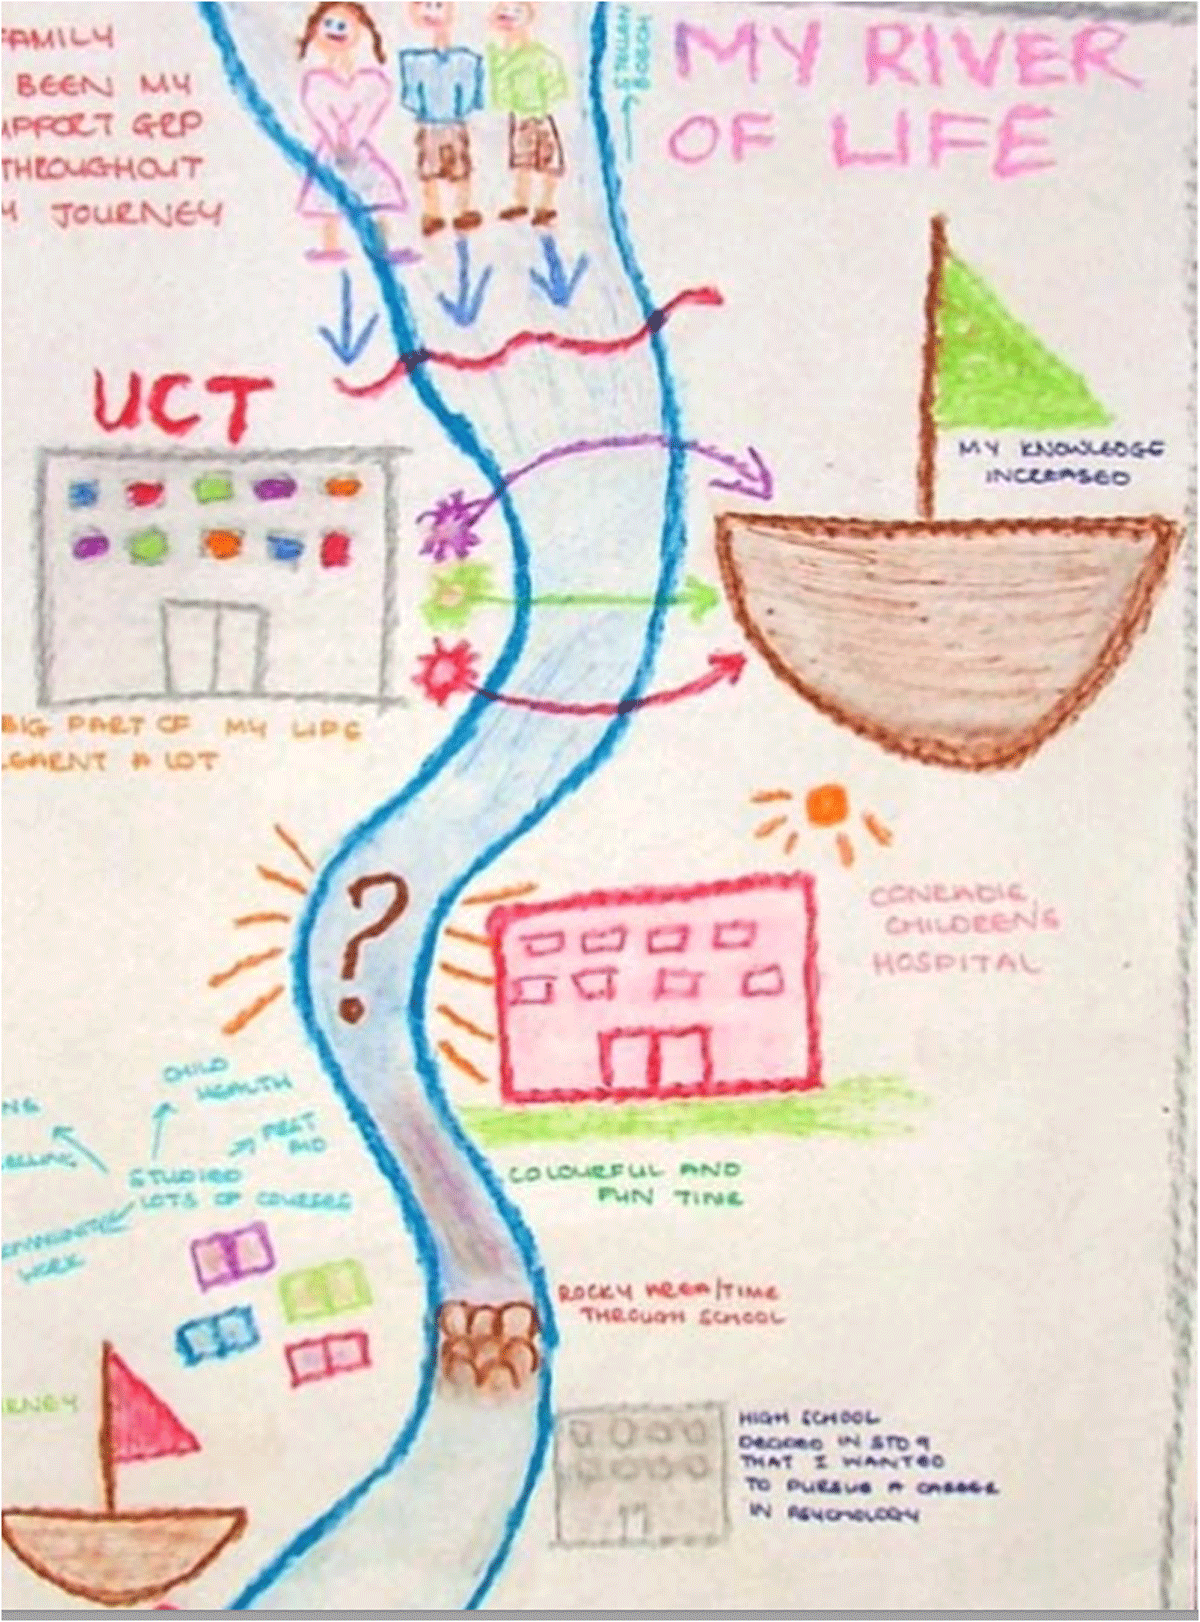 MY RIVER
OF LIFE
FAMILY
BEEN MY
SUPPORT GRP
THROUGHOUT
MY JOURNEY
UCT
MY KNOWLEDGE
INCREASED
BIG PART OF MY LIFE
LEARNT A LOT
CONRADIE
CHILDREN'S
HOSPITAL
?
CHILD
HEALTH
FIRST
AID
STUDIED
LOTS OF COURSES
COMMUNITY
WORK
COLOURFUL AND
FUN TIME
ROCKY AREA/TIME
THROUGH SCHOOL
HIGH SCHOOL
DECIDED IN STD 9
THAT I WANTED
TO PURSUE A CAREER
IN PSYCHOLOGY